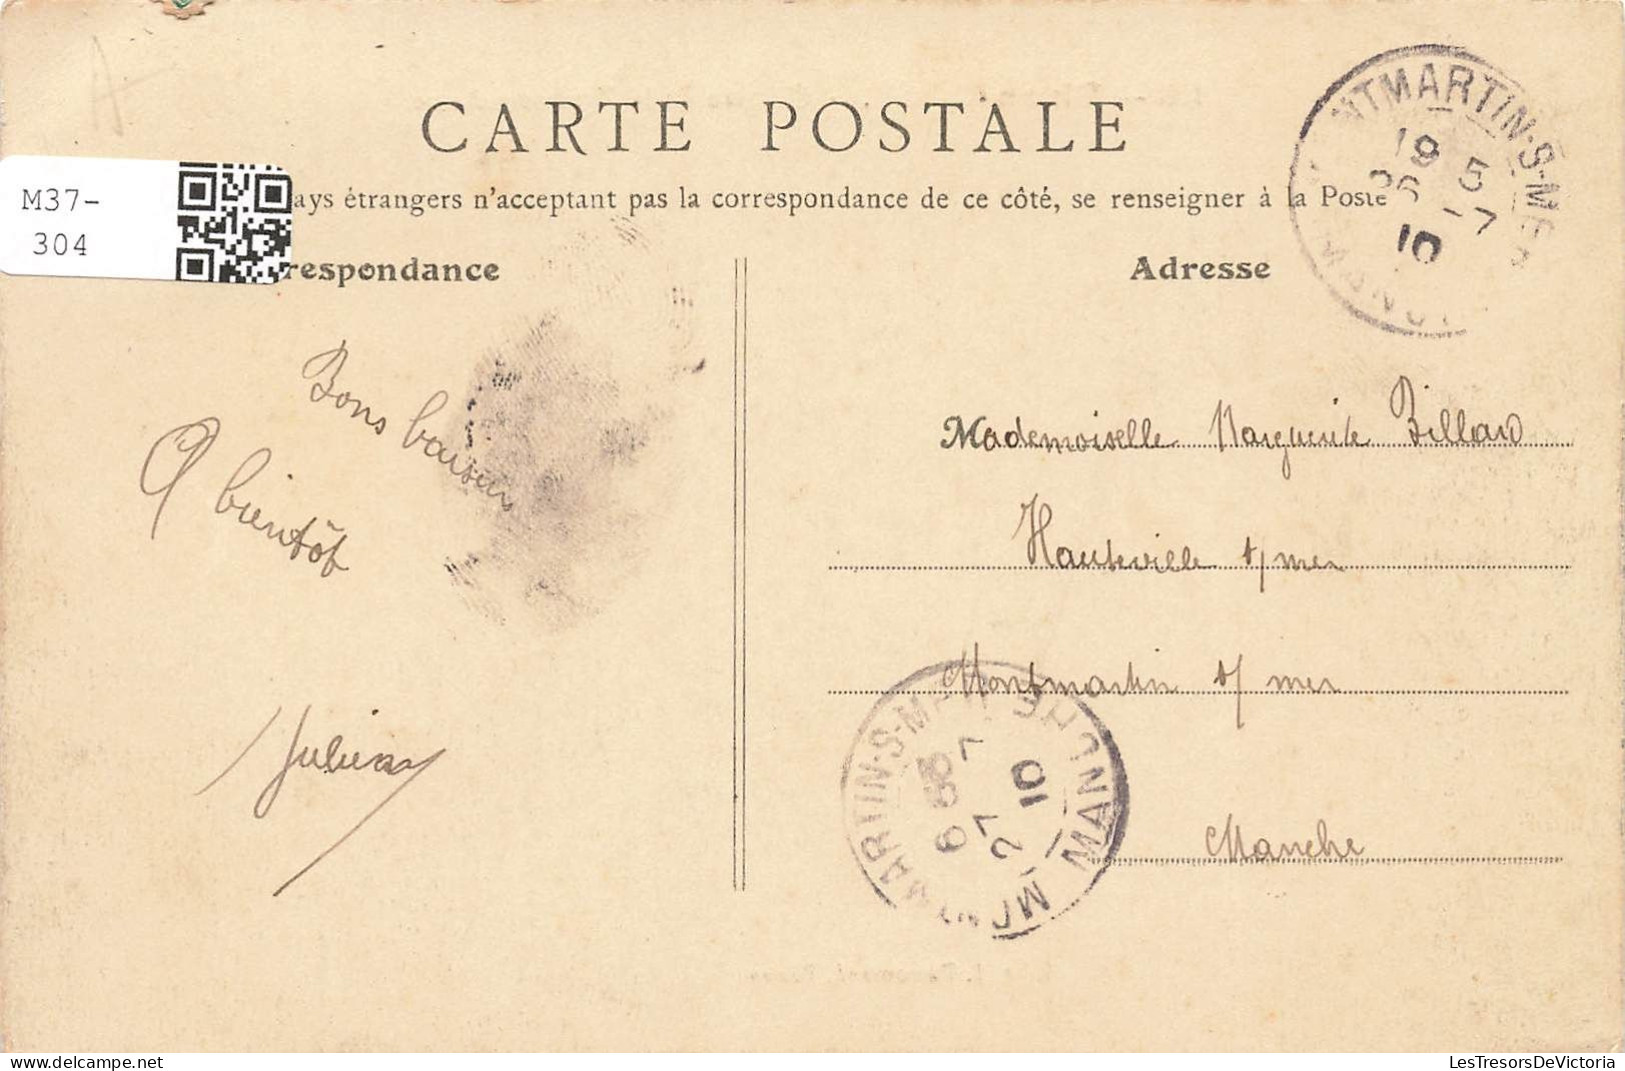 CARTE POSTALE
M37-
304
ays étrangers n'acceptant pas la correspondance de ce côté, se renseigner à la Poste
respondance
Adresse
NTMARTIN-S-MER
19 5
26 -7
10
Bons baisers
A bientôt
Julien
Mademoiselle Marguerite Billard
Hauteville s/ mer
Montmartin s/ mer
Manche
MARTIN-S-M
MANCHE
6
27 7
10
LesTresorsDeVictoria
delcampe.net